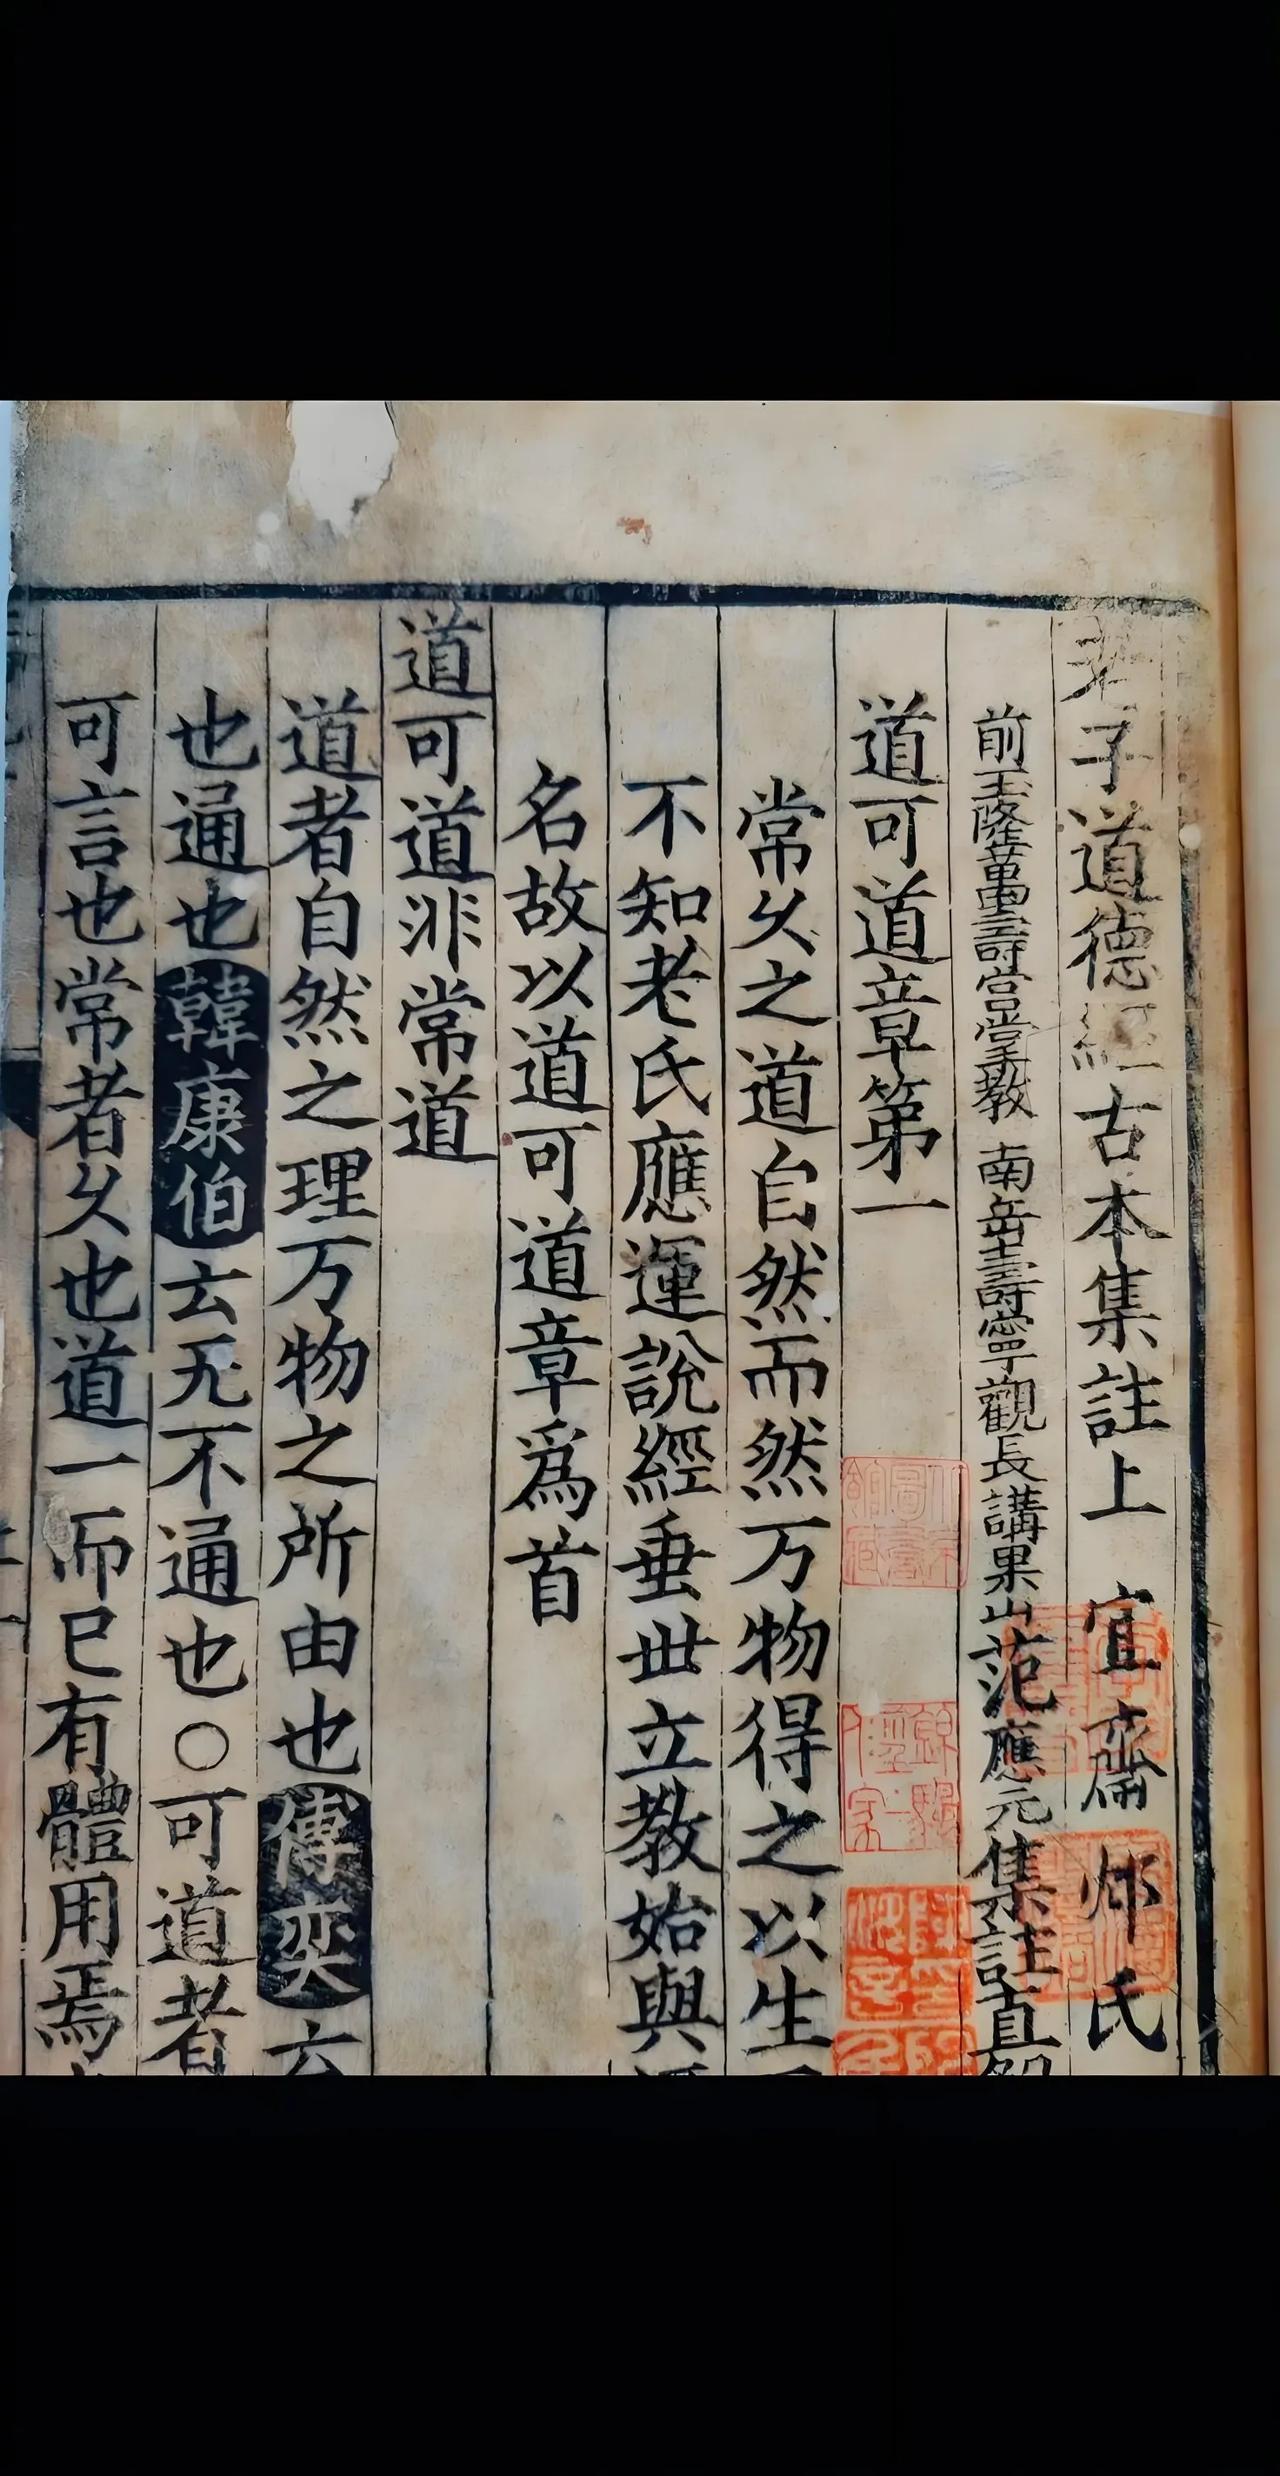 老子道德經古本集註上 宜齋 邤氏
前玉隆萬壽宮掌教 南岳壽寧觀長講果山范應元集註直
道可道章第一
常久之道自然而然万物得之以生
不知老氏應運說經垂世立教始與
名故以道可道章爲首
道可道非常道
道者自然之理万物之所由也傅奕云
也通也韓康伯云无不通也○可道者
可言也常者久也道一而已有體用焉